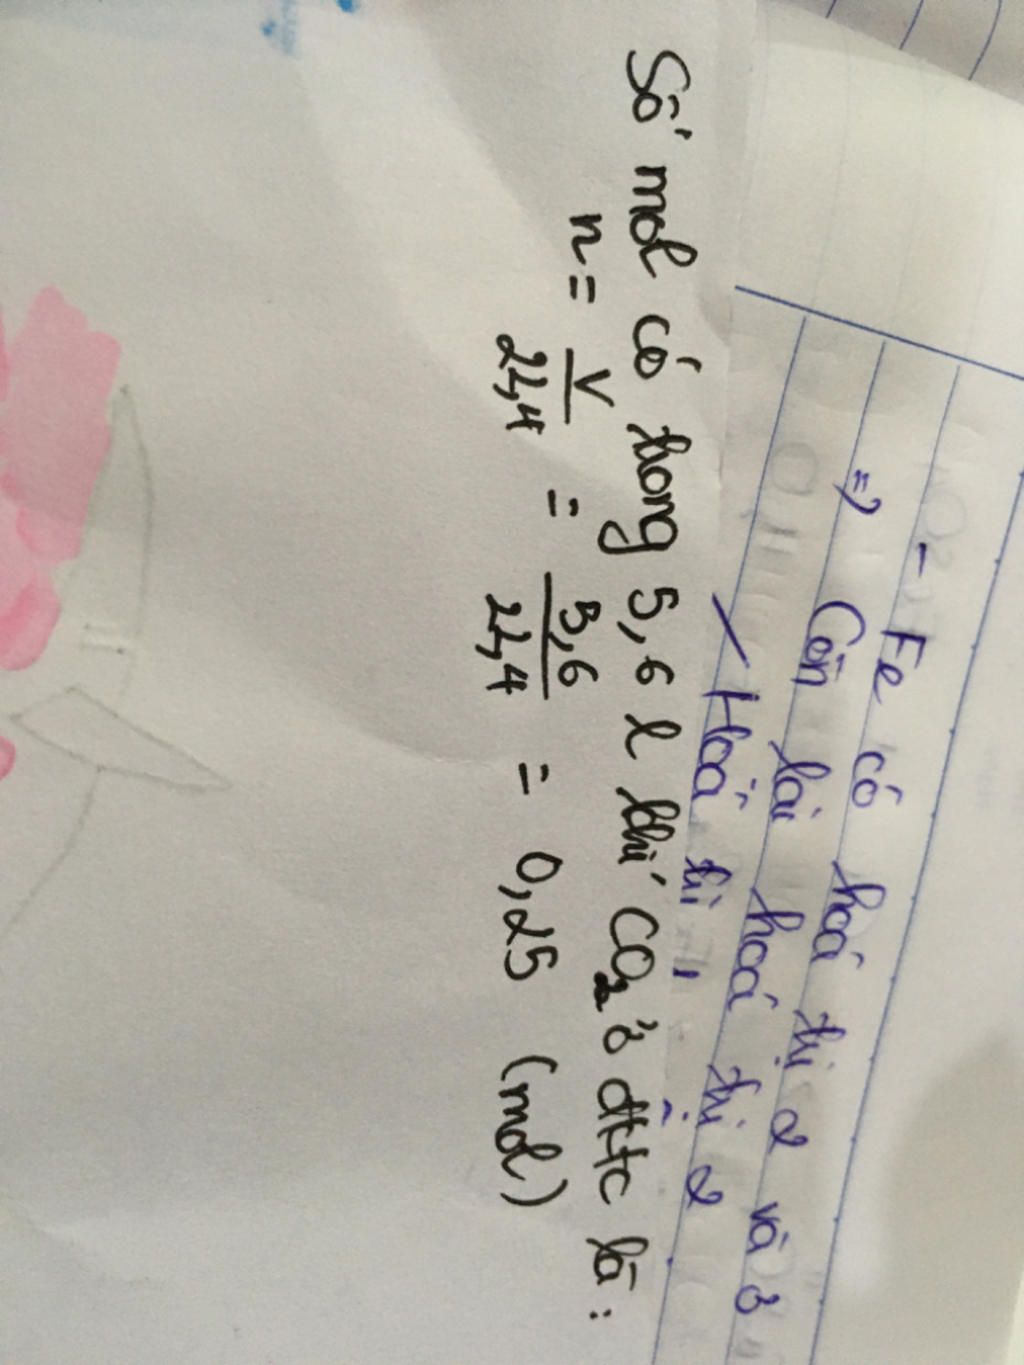 - Fe có hoá trị 2 và 3
=> Còn lại hoá trị 2
Số mol có trong 5,6 l khí CO2 ở đktc là:
n = V/22,4 = 5,6/22,4 = 0,25 (mol)